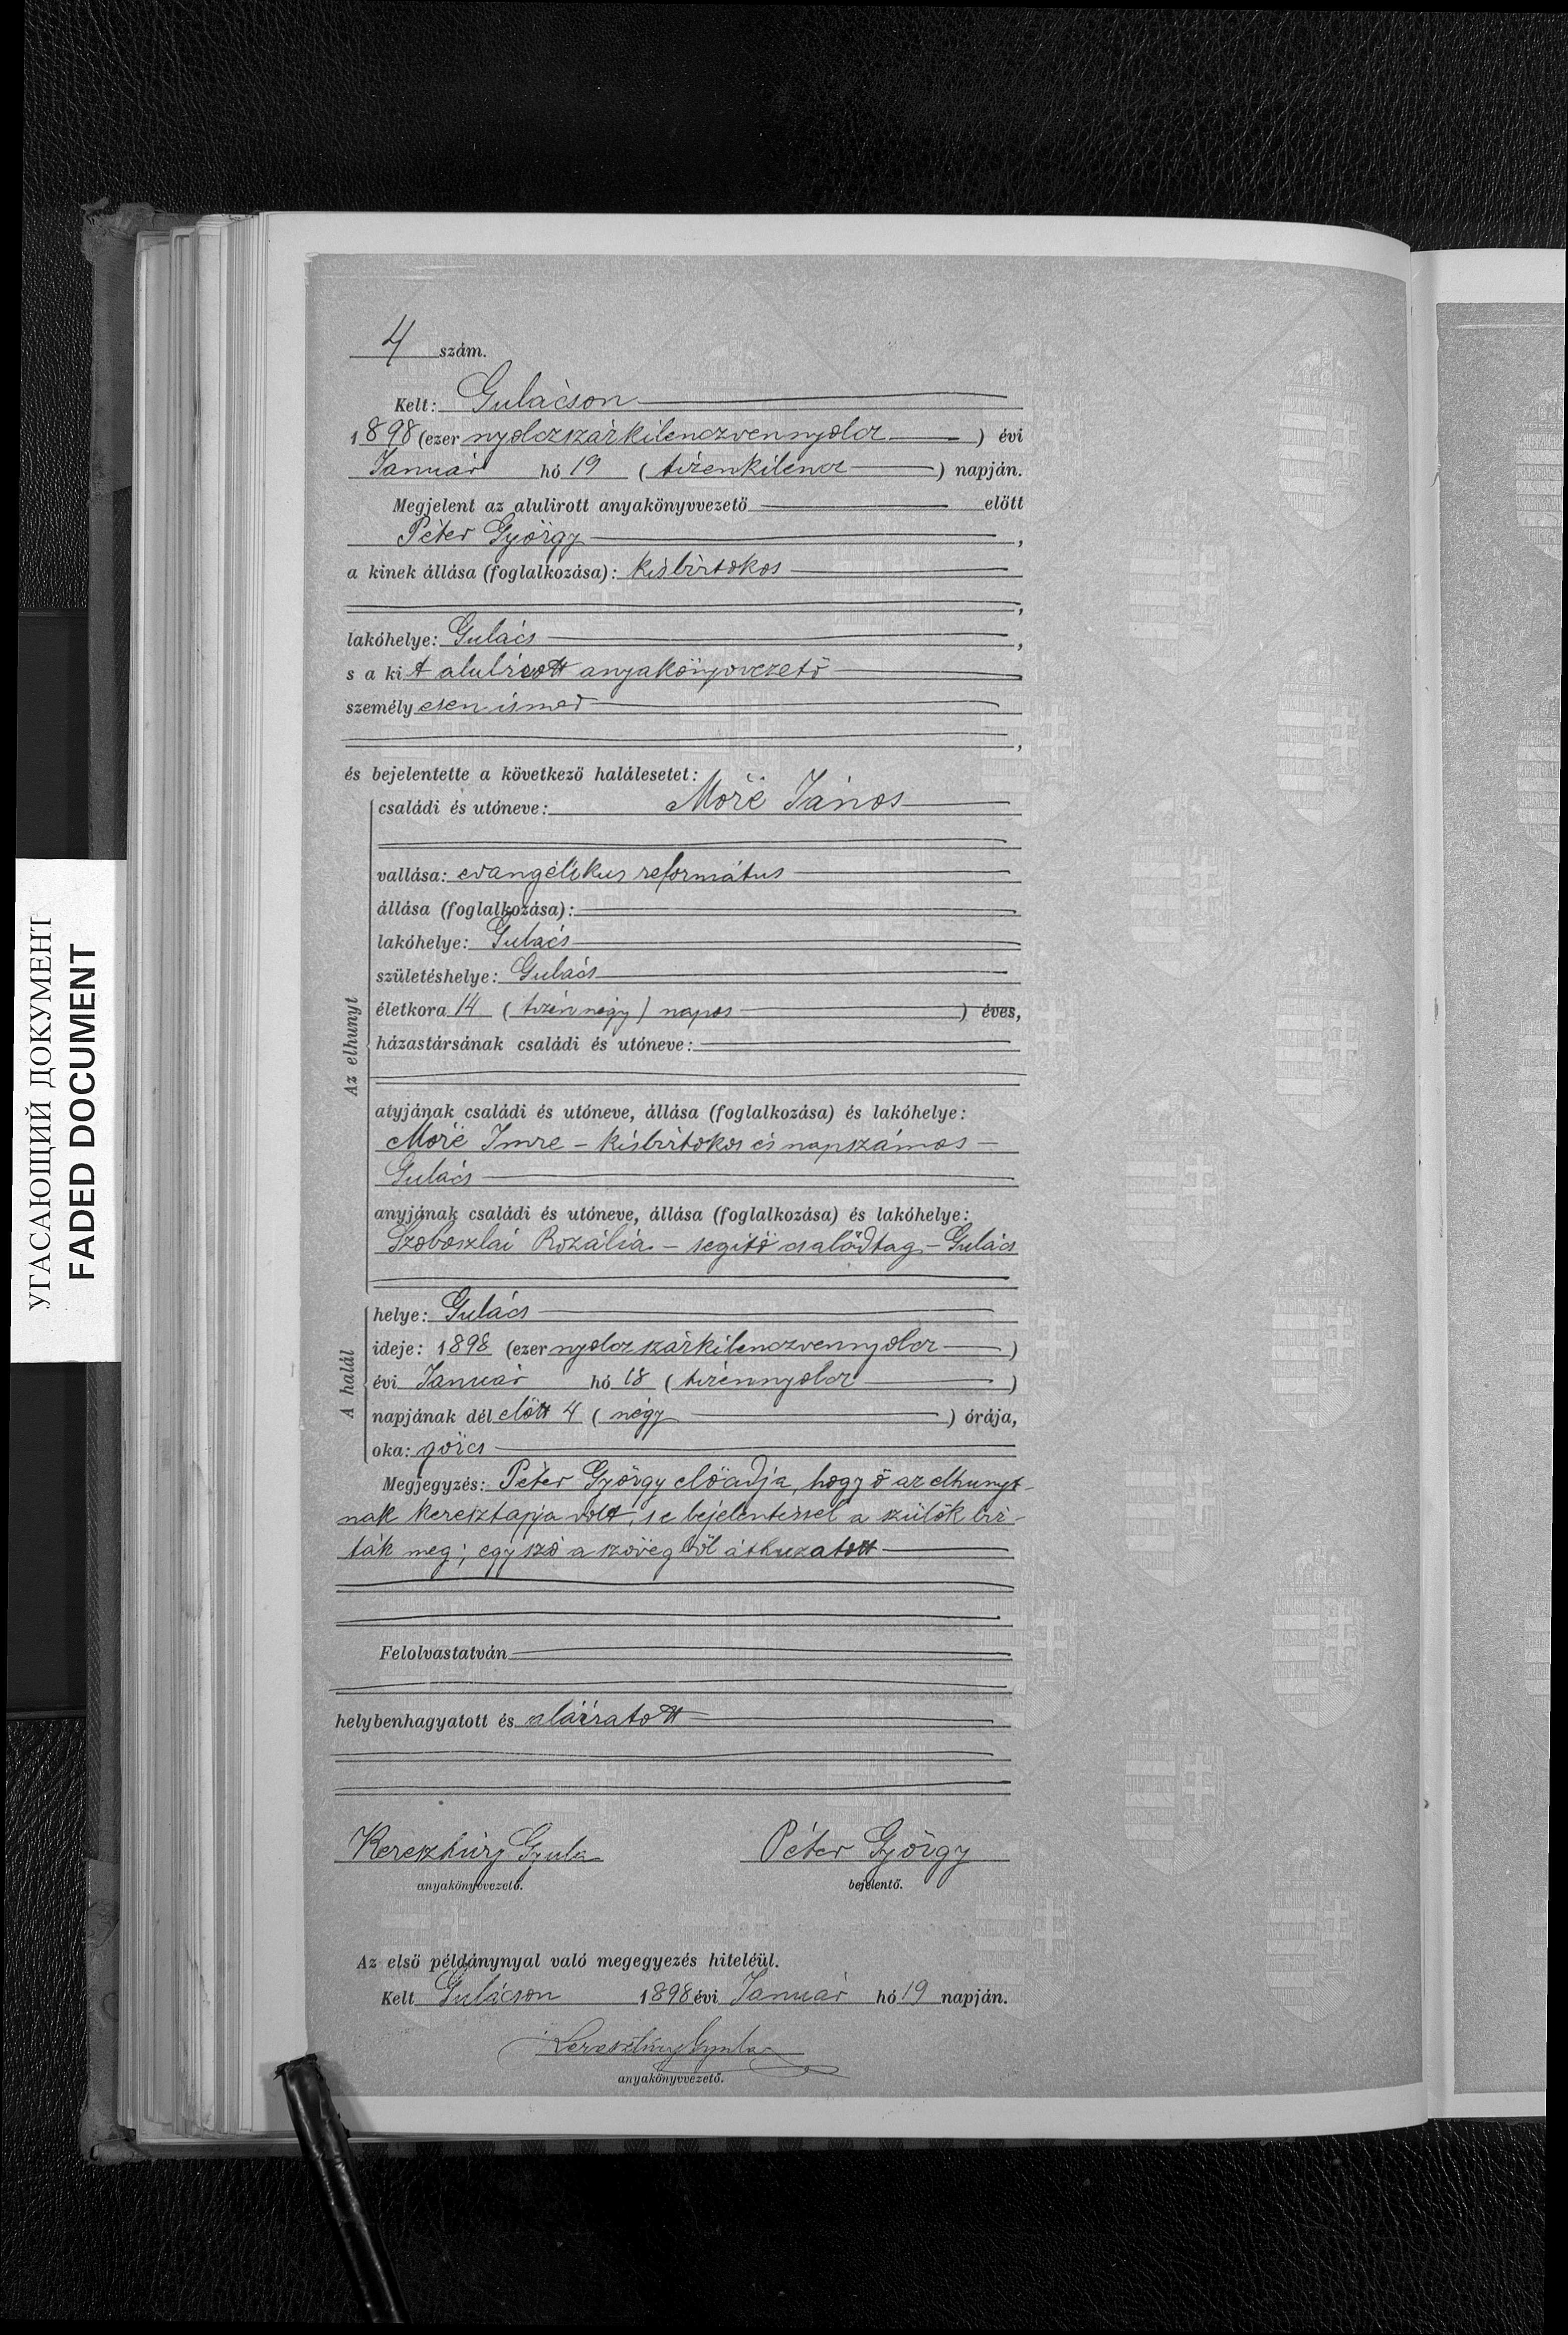 УГАСАЮЩИЙ ДОКУМЕНТ
FADED DOCUMENT
4 szám.
Kelt: Gulácson
1898 (ezer nyolczszázkilenczvennyolcz) évi
Január hó 19 (tizenkilencz) napján.
Megjelent az alulirott anyakönyvvezető előtt
Péter György,
a kinek állása (foglalkozása): kisbirtokos
,
lakóhelye: Gulács,
s a kit alulírott anyakönyvvezető
személyesen ismer
,
és bejelentette a következő halálesetet:
Az elhunyt
családi és utóneve: Móré János
vallása: evangélikus református
állása (foglalkozása):
lakóhelye: Gulács
születéshelye: Gulács
életkora 14 (tizennégy) napos ) éves,
házastársának családi és utóneve:
atyjának családi és utóneve, állása (foglalkozása) és lakóhelye:
Móré Imre - kisbirtokos és napszámos -
Gulács
anyjának családi és utóneve, állása (foglalkozása) és lakóhelye:
Szoboszlai Rozália - segítő családtag - Gulács
A halál
helye: Gulács
ideje: 1898 (ezer nyolczszázkilenczvennyolcz)
évi Január hó 18 (tizennyolcz)
napjának dél előtt 4 (négy) órája,
oka: görcs
Megjegyzés: Péter György előadja, hogy ő az elhunyt-
nak keresztapja volt, s e bejelentéssel a szülők bíz-
ták meg; egy szó a szövegből áthuzatott
Felolvastatván
helybenhagyatott és aláíratott
Kereszthúry Gyula Péter György
anyakönyvvezető. bejelentő.
Az első példánynyal való megegyezés hiteléül.
Kelt Gulácson 1898 évi Január hó 19 napján.
Kereszthúry Gyula
anyakönyvvezető.